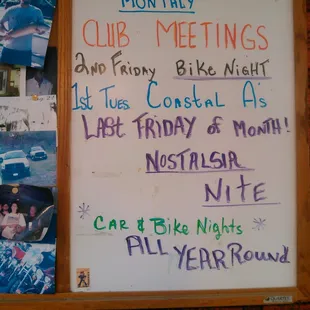 MONTHLY
CLUB MEETINGS
2ND FRIDAY BIKE NIGHT
1st Tues Coastal A's
LAST FRIDAY of MONTH!
NOSTALSIA
NITE
CAR & BIKE NIGHTS
ALL YEAR Round